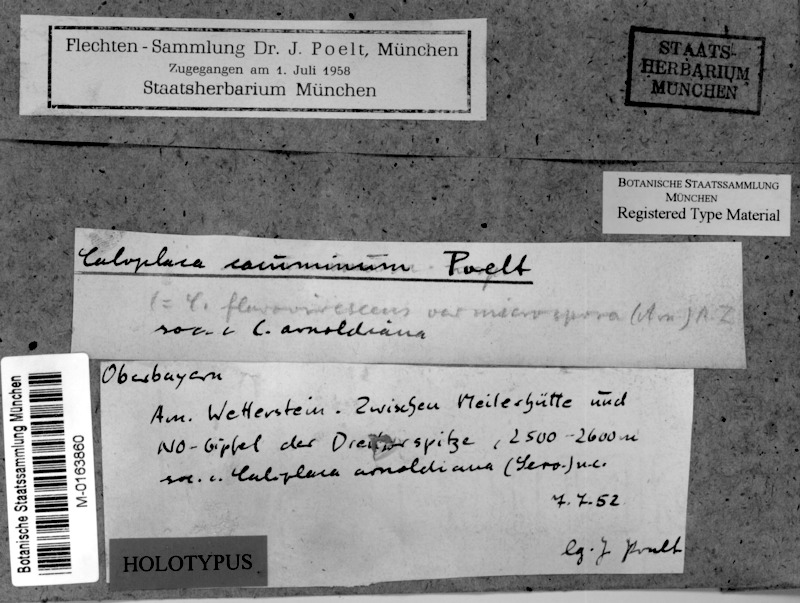 Flechten-Sammlung Dr. J. Poelt, München
Zugegangen am 1. Juli 1958
Staatsherbarium München
STAATS-
HERBARIUM
MÜNCHEN
BOTANISCHE STAATSSAMMLUNG
MÜNCHEN
Registered Type Material
Caloplaca cacuminum Poelt
(= C. flavovirescens var microspora (Arn.) A.Z
soc. c C. arnoldiana
Oberbayern
Am. Wetterstein. Zwischen Meilerhütte und
NO-Gipfel der Dreitorspitze, 2500-2600m
soc. c. Caloplaca arnoldiana (Serv.)
7.7.52
lg. J Poelt
HOLOTYPUS
Botanische Staatssammlung München
M-0163860